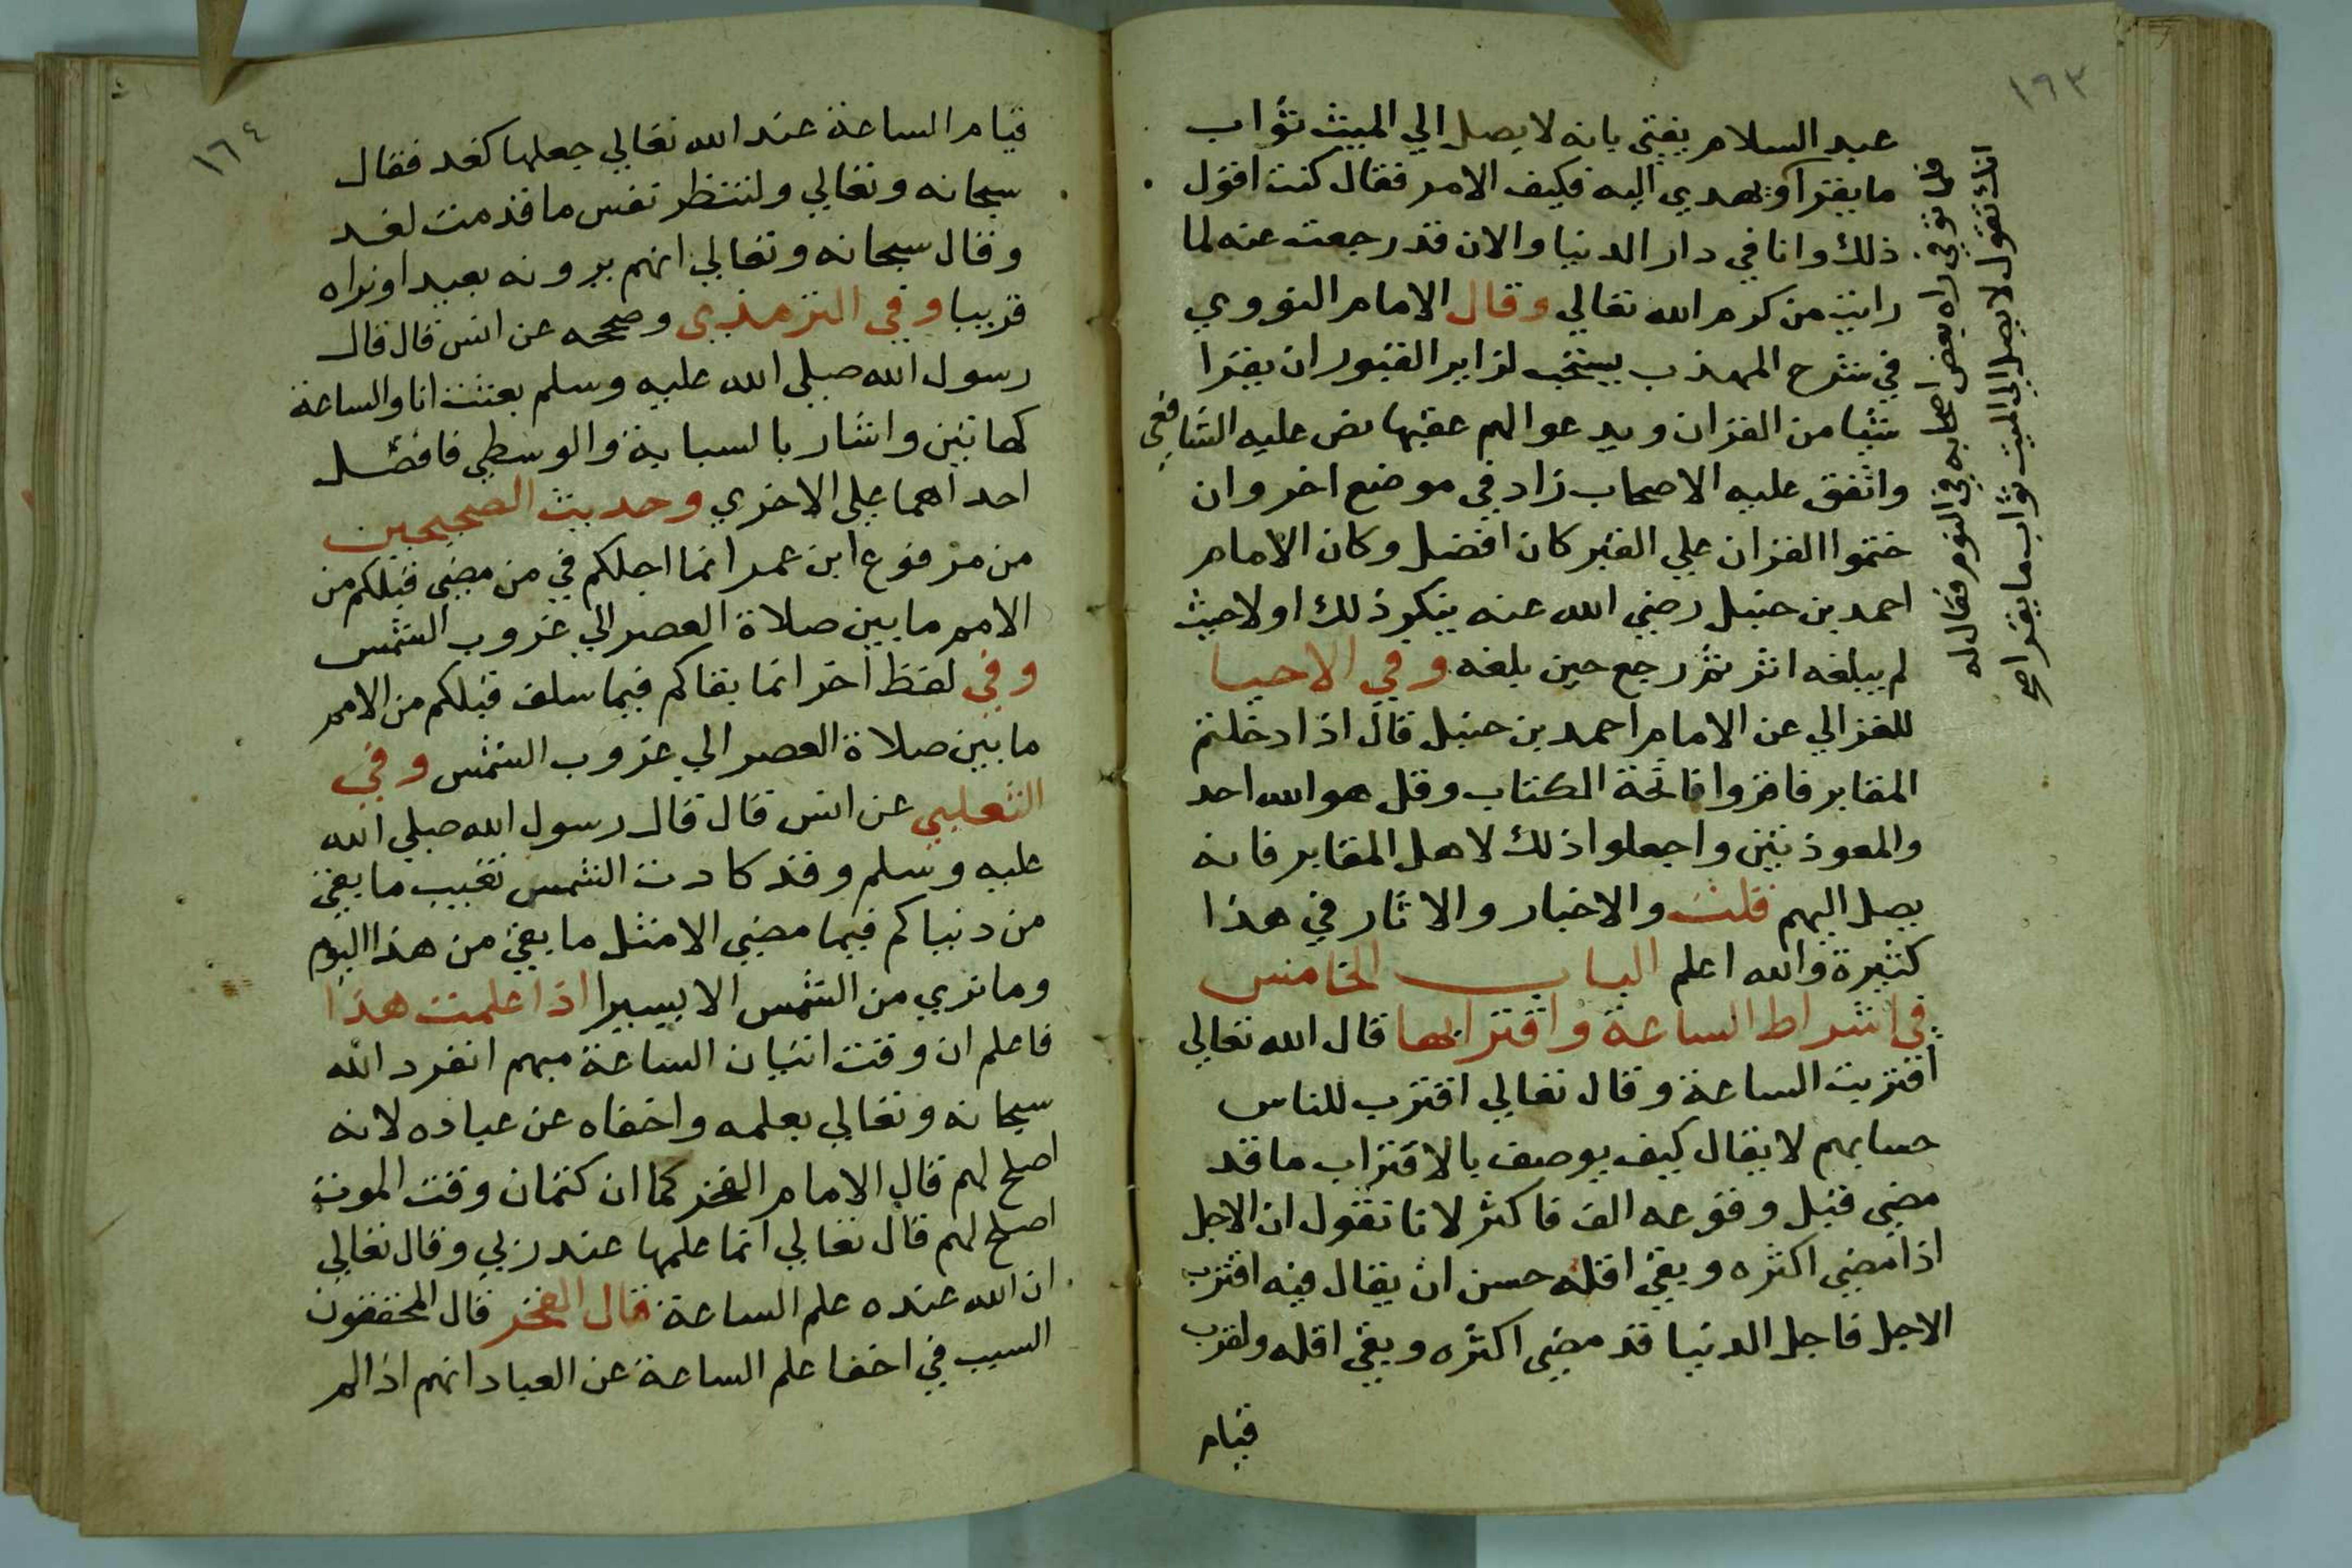 ١٦٣
عبد السلام يفتي بانه لا يصل الي الميت ثواب
ما يقرا ويهدي اليه فكيف الامر فقال كنت اقول
ذلك وانا في دار الدنيا والان قد رجعت عنه لما
رايت من كرم الله تعالي وقال الامام النووي
في شرح المهذب يستحب لزاير القبور ان يقرا
شيا من القران ويدعوا لهم عقبها نص عليه الشافعي
واتفق عليه الاصحاب زاد في موضع اخر وان
ختموا القران علي القبر كان افضل وكان الامام
احمد بن حنبل رضي الله عنه ينكر ذلك اولا حيث
لم يبلغه اثر ثم رجع حين بلغه وفي الاحيا
للغزالي عن الامام احمد بن حنبل قال اذا دخلتم
المقابر فاقروا فاتحة الكتاب وقل هو الله احد
والمعوذتين واجعلوا ذلك لاهل المقابر فانه
يصل اليهم قلت والاخبار والاثار في هذا
كثيرة والله اعلم الباب الخامس
في اشراط الساعة واقترابها قال الله تعالي
اقتربت الساعة وقال تعالي اقترب للناس
حسابهم لا يقال كيف يوصف بالاقتراب ما قد
مضي قبل وقوعه الف فاكثر لانا نقول ان الاجل
اذا مضي اكثره وبقي اقله حسن ان يقال فيه اقترب
الاجل فاجل الدنيا قد مضي اكثره وبقي اقله ولقرب
قيام
فلما توفي راه بعض اصحابه في النوم فقال له
انك تقول لا يصل الي الميت ثواب ما يقرا
١٦٤
قيام الساعة عند الله تعالي جعلها كغد فقال
سبحانه وتعالي ولتنظر نفس ما قدمت لغد
وقال سبحانه وتعالي انهم يرونه بعيدا ونراه
قريبا وفي الترمذي وصححه عن انس قال قال
رسول الله صلي الله عليه وسلم بعثت انا والساعة
كهاتين واشار بالسبابة والوسطي فافضل
احداهما علي الاخري وحديث الصحيحين
من مرفوع ابن عمر انما اجلكم في من مضي قبلكم من
الامم ما بين صلاة العصر الي غروب الشمس
وفي لفظ اخر انما بقاكم فيما سلف قبلكم من الامم
ما بين صلاة العصر الي غروب الشمس وفي
الثعلبي عن انس قال قال رسول الله صلي الله
عليه وسلم وقد كادت الشمس تغيب ما بقي
من دنياكم فيما مضي الا مثل ما بقي من هذا اليوم
وما نري من الشمس الا يسيرا اذا علمت هذا
فاعلم ان وقت اتيان الساعة مبهم انفرد الله
سبحانه وتعالي بعلمه واخفاه عن عباده لانه
اصلح لهم قال الامام الفخر كما ان كتمان وقت الموت
اصلح لهم قال تعالي انما علمها عند ربي وقال تعالي
ان الله عنده علم الساعة قال الفخر قال المحققون
السبب في اخفا علم الساعة عن العباد انهم اذا لم